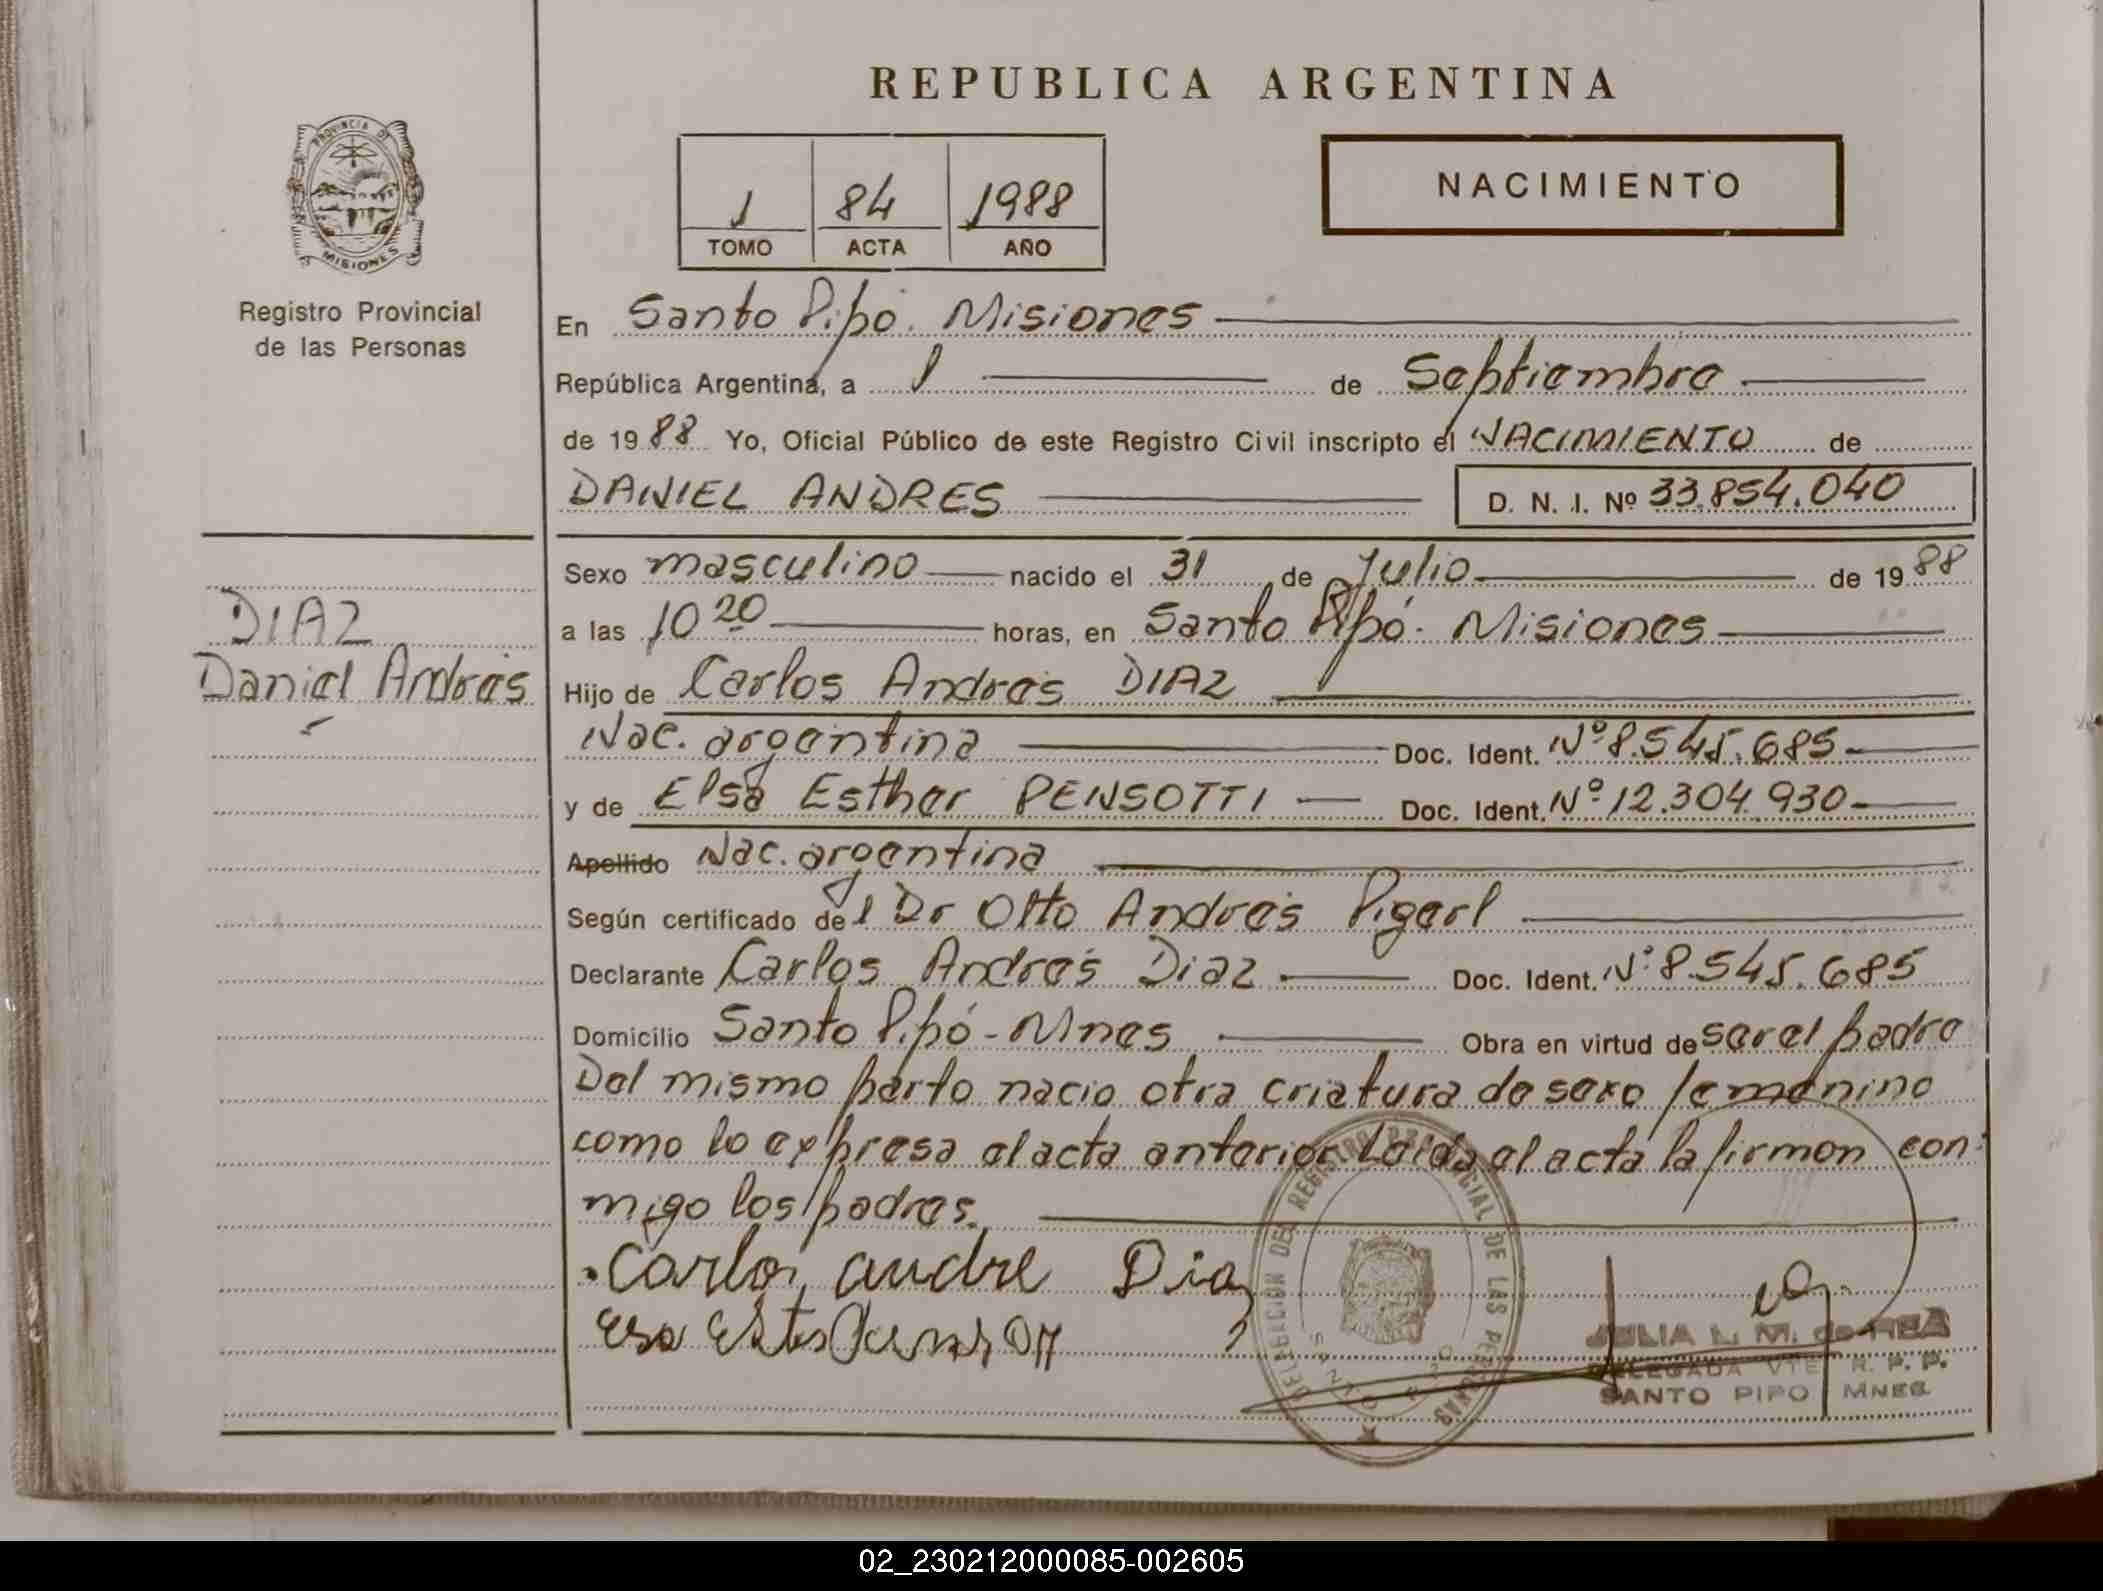 REPUBLICA ARGENTINA
PROVINCIA DE
MISIONES
Registro Provincial
de las Personas
1 84 1988
TOMO ACTA AÑO
NACIMIENTO
En Santo Pipó. Misiones
República Argentina, a 1 de Septiembre
de 1988 Yo, Oficial Público de este Registro Civil inscripto el NACIMIENTO de
DANIEL ANDRES D. N. I. Nº 33.854.040
Sexo masculino nacido el 31 de Julio de 1988
a las 10 20 horas, en Santo Pipó. Misiones
DIAZ
Daniel Andrés
Hijo de Carlos Andrés DIAZ
Nac. argentina Doc. Ident. Nº 8.545.685
y de Elsa Esther PENSOTTI Doc. Ident. Nº 12.304.930
Apellido Nac. argentina
Según certificado del Dr Otto Andrés Pigerl
Declarante Carlos Andrés Diaz Doc. Ident. Nº 8.545.685
Domicilio Santo Pipó - Mnes Obra en virtud de ser el padre
Del mismo parto nacio otra criatura de sexo femenino
como lo expresa el acta anterior Leida el acta la firman con
migo los padres.
Carlos andre Diaz
DELEGACION DEL REGISTRO PROVINCIAL DE LAS PERSONAS
SANTO PIPO
JULIA L. M. CORREA
DELEGADA VTE R. P. P.
SANTO PIPO MNES.
02_230212000085-002605